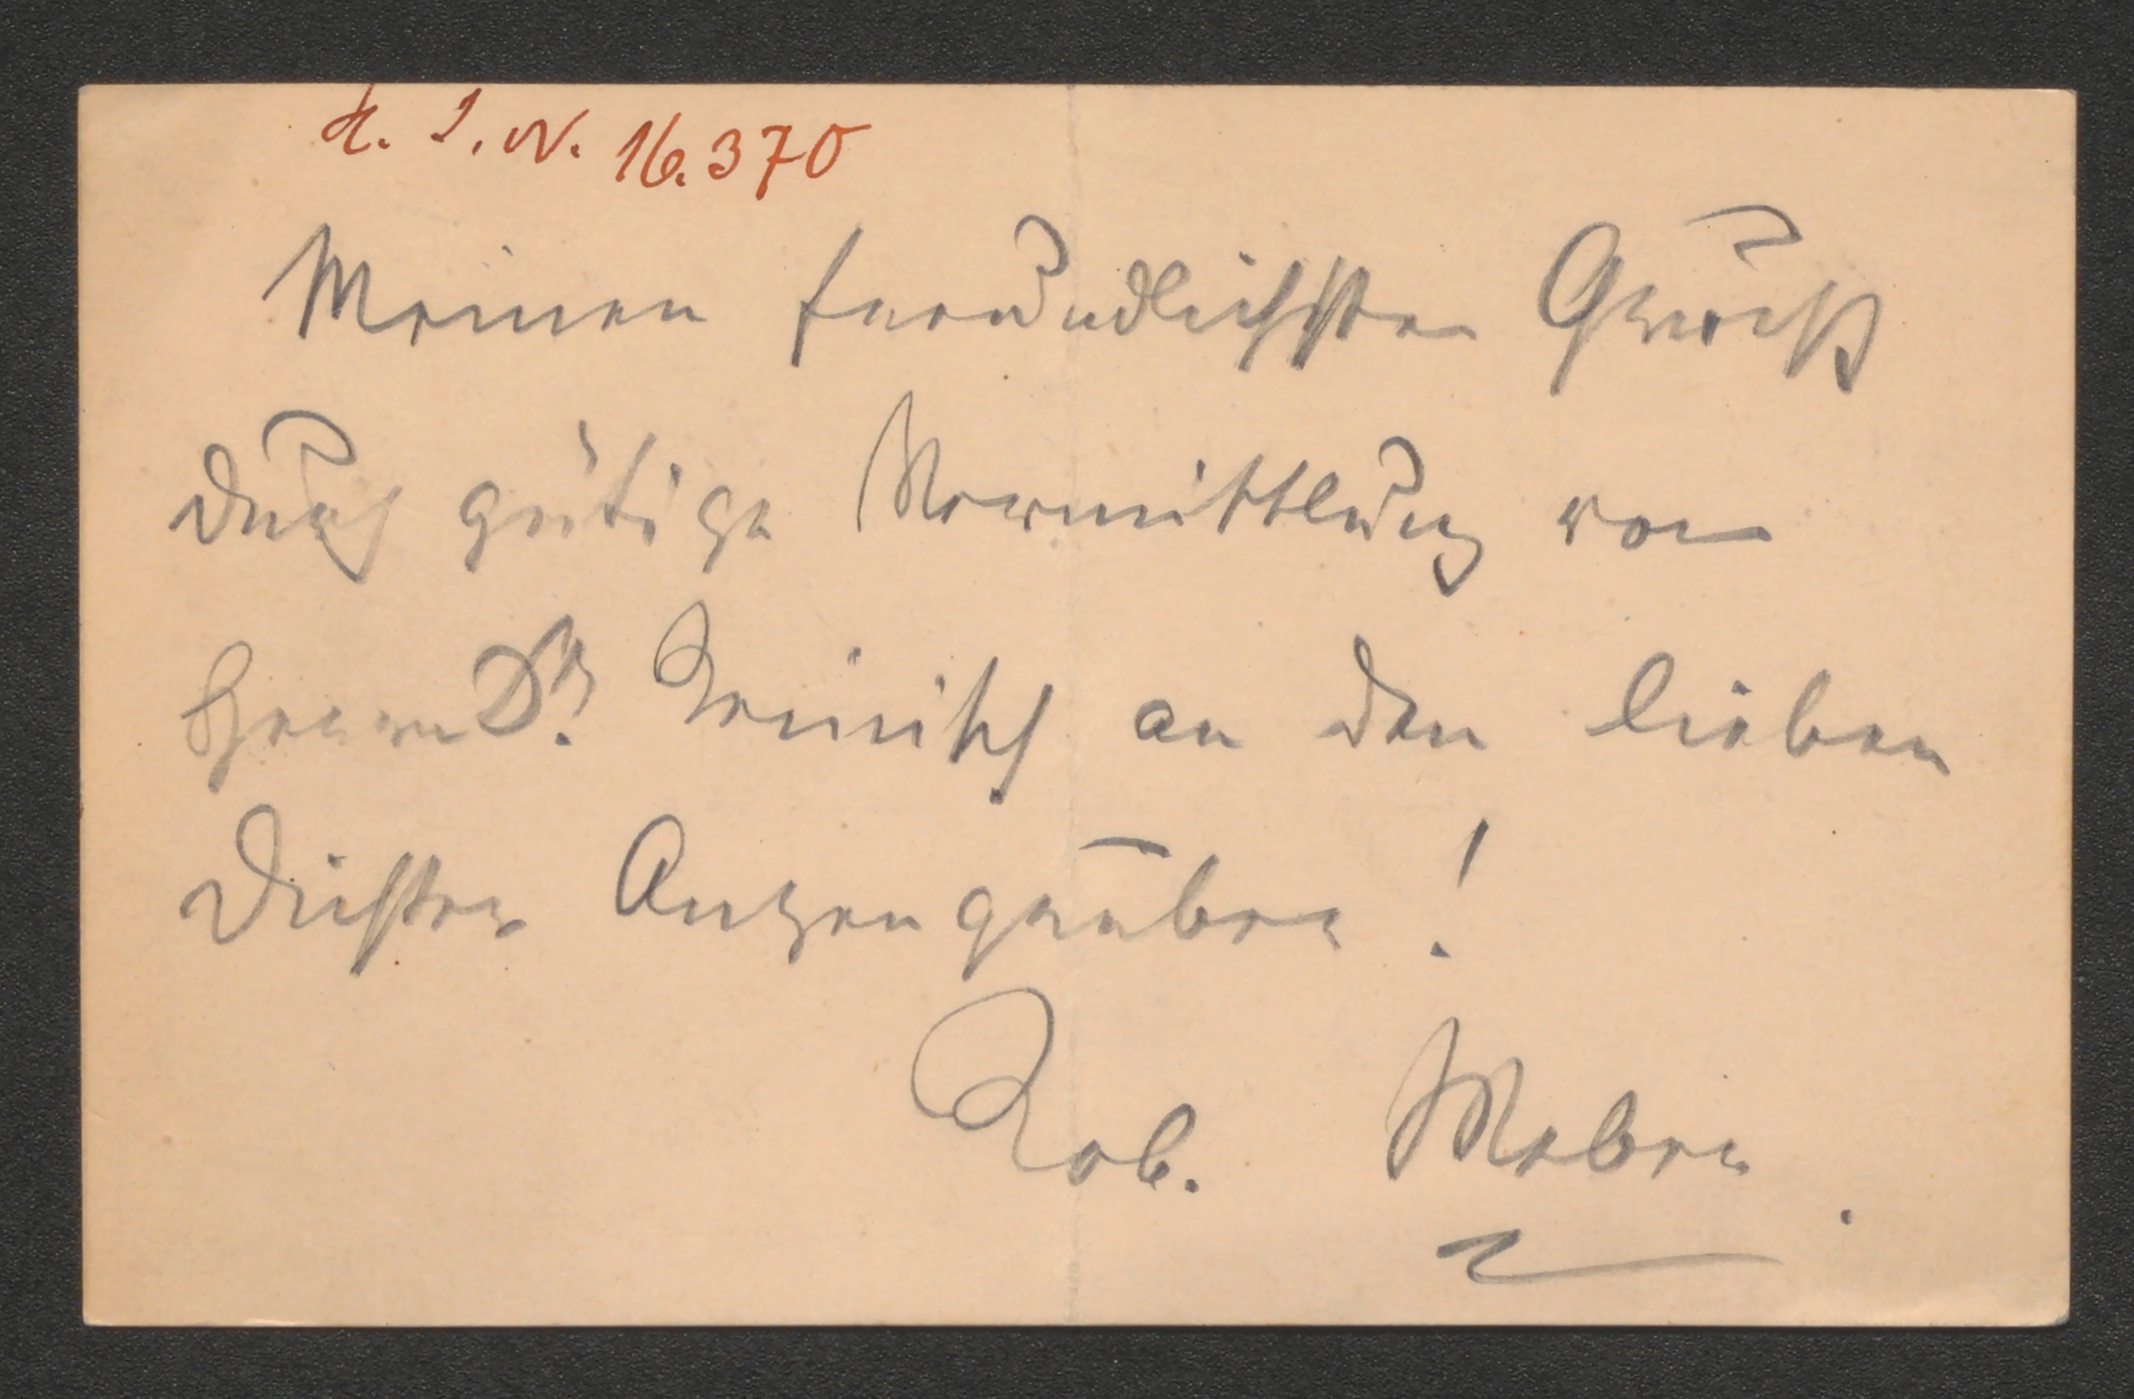 H. I. N. 16.370
Meinen freundlichsten Gruß
durch gütige Vermittlung von
Herrn Dr. an den lieben
Dichter Anzengruber!
Rob. Weber.